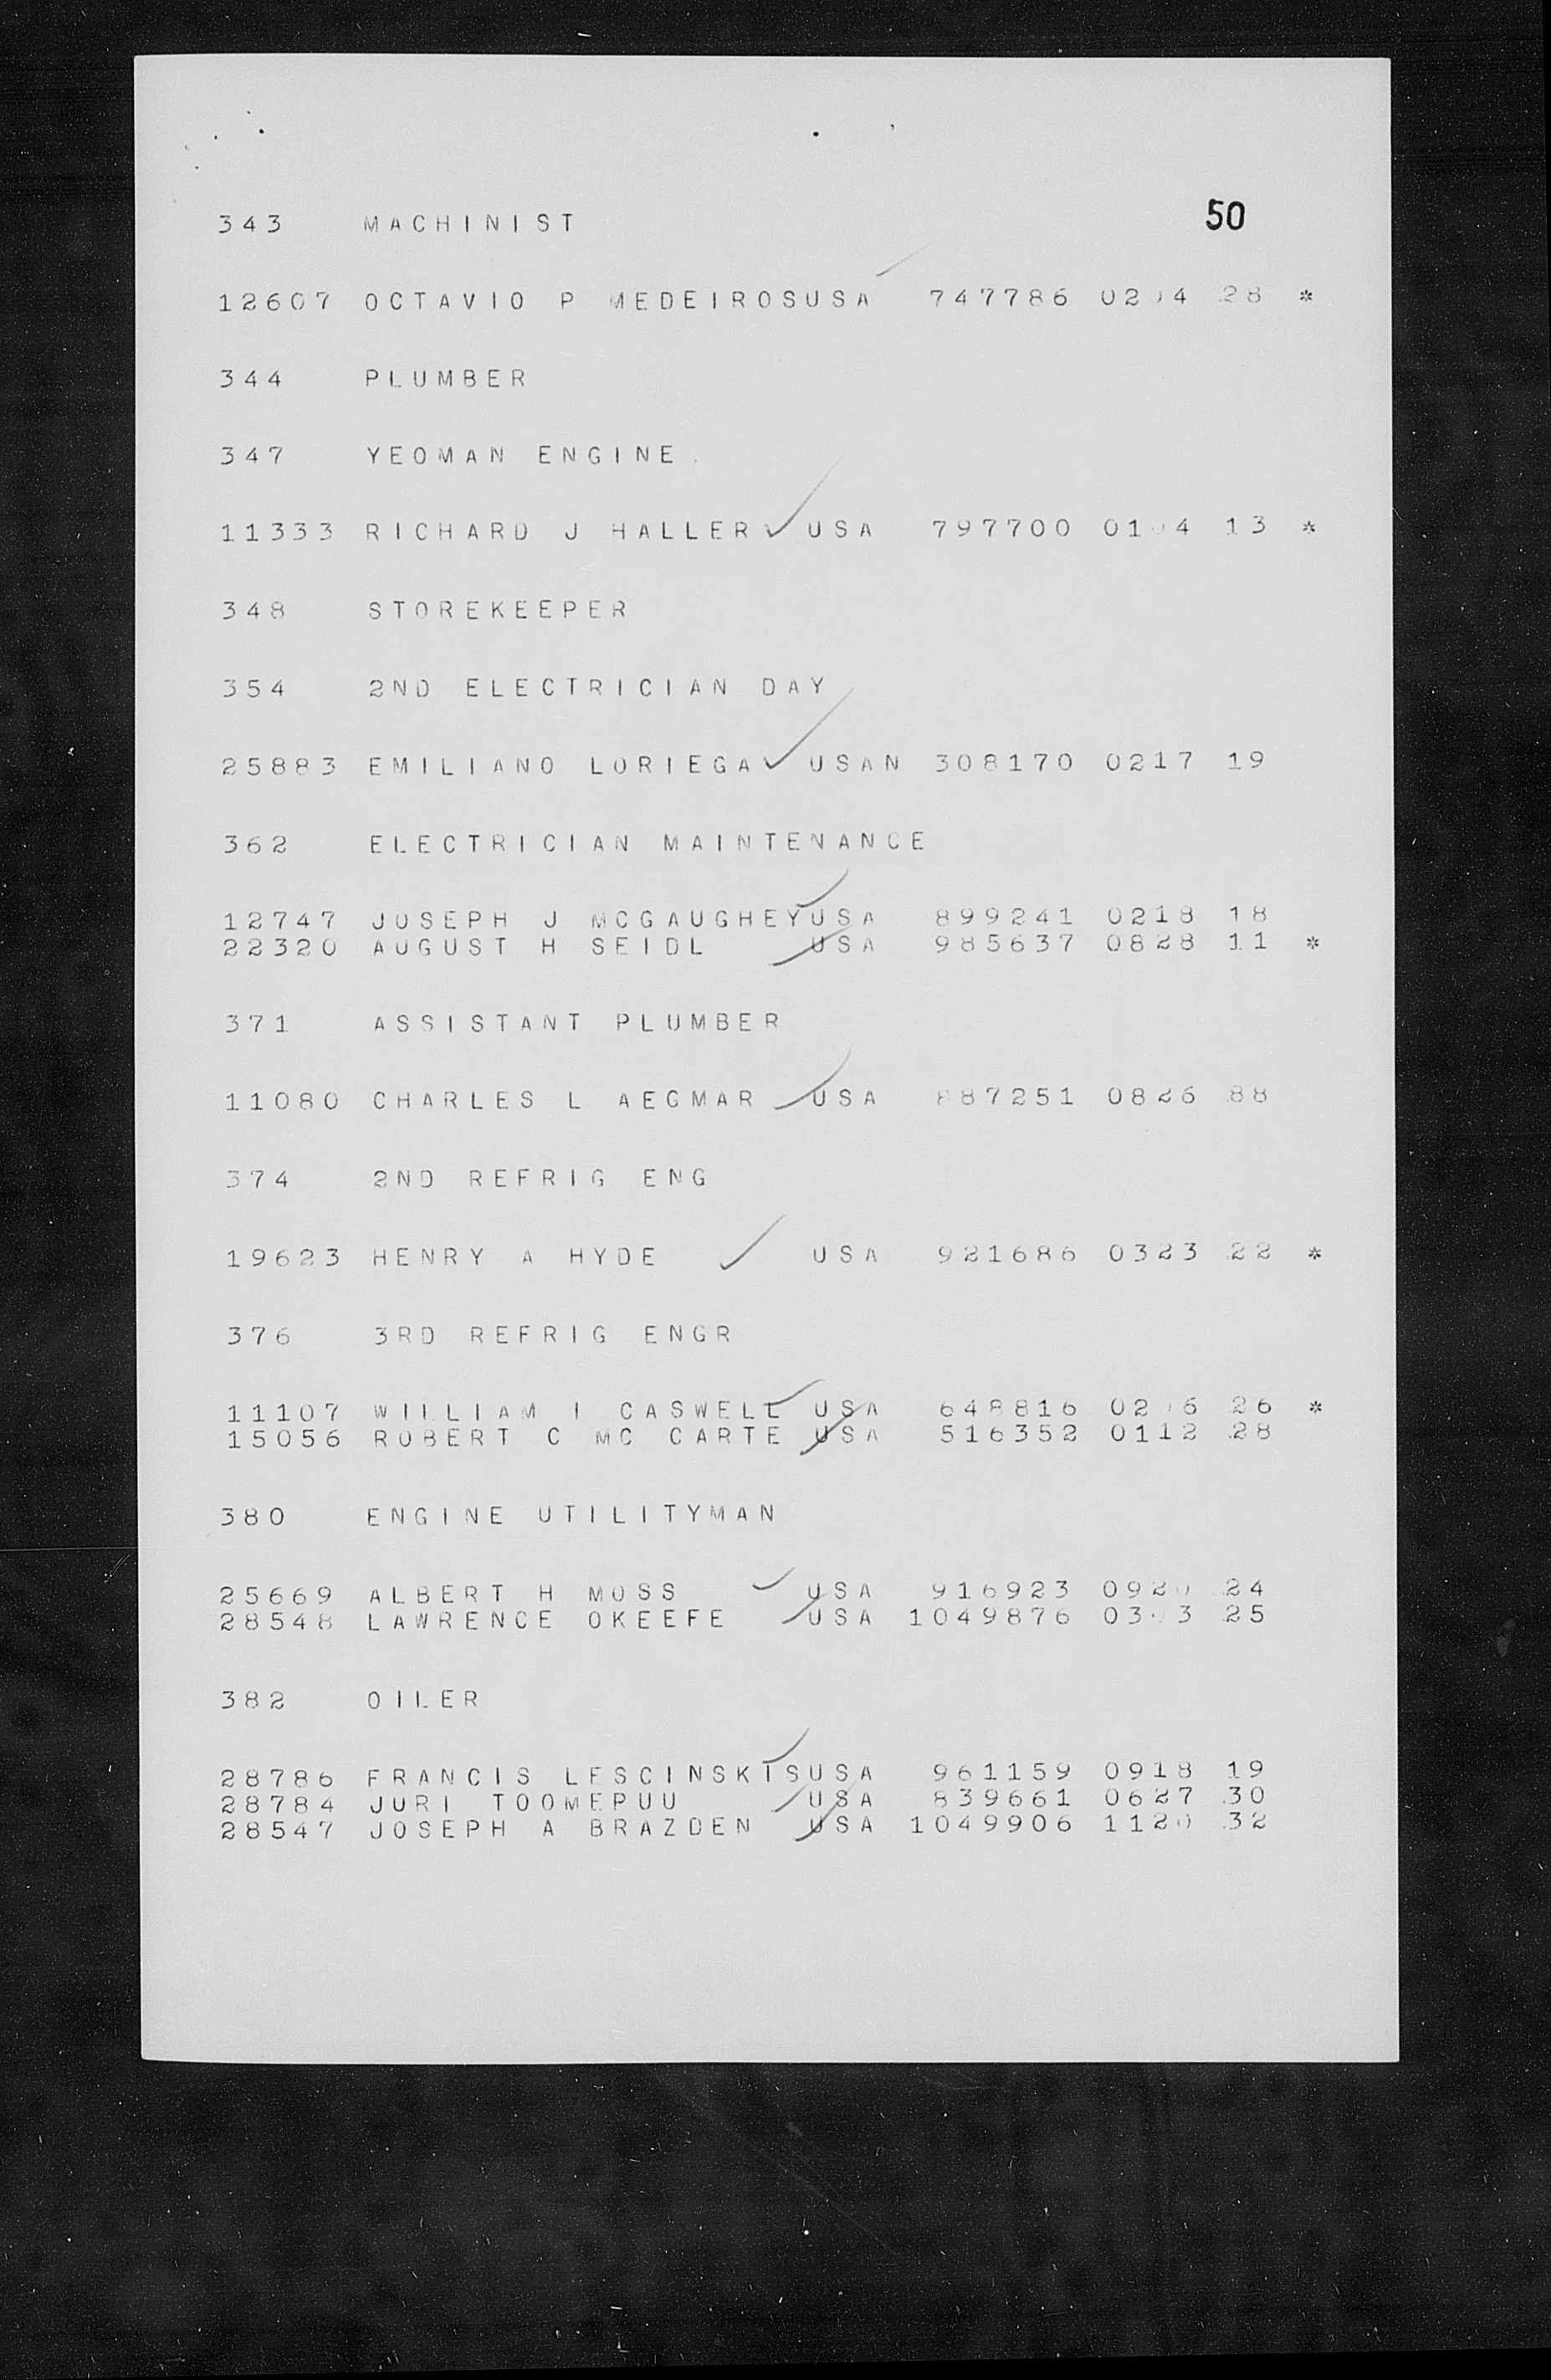 343 MACHINIST 50
12607 OCTAVIO P MEDEIROSUSA 747786 0204 28 *
344 PLUMBER
347 YEOMAN ENGINE
11333 RICHARD J HALLER USA 797700 0104 13 *
348 STOREKEEPER
354 2ND ELECTRICIAN DAY
25883 EMILIANO LORIEGA USAN 308170 0217 19
362 ELECTRICIAN MAINTENANCE
12747 JOSEPH J MCGAUGHEYUSA 899241 0218 18
22320 AUGUST H SEIDL USA 985637 0828 11 *
371 ASSISTANT PLUMBER
11080 CHARLES L AEGMAR USA 887251 0826 88
374 2ND REFRIG ENG
19623 HENRY A HYDE USA 921686 0323 22 *
376 3RD REFRIG ENGR
11107 WILLIAM I CASWELL USA 648816 0206 26 *
15056 ROBERT C MC CARTE USA 516352 0112 28
380 ENGINE UTILITYMAN
25669 ALBERT H MOSS USA 916923 0920 24
28548 LAWRENCE OKEEFE USA 1049876 0303 25
382 OILER
28786 FRANCIS LESCINSKISUSA 961159 0918 19
28784 JURI TOOMEPUU USA 839661 0627 30
28547 JOSEPH A BRAZDEN USA 1049906 1120 32